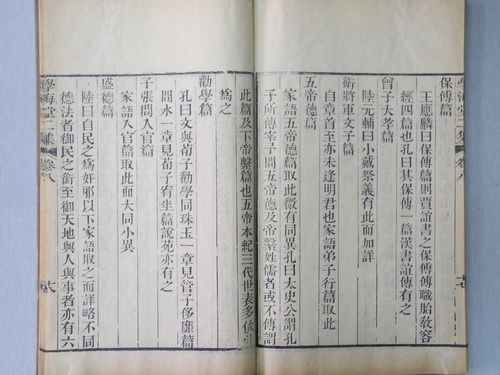 保傅篇
王應麟曰保傅篇則賈誼書之保傅傅職胎敎容
經四篇也孔曰其保傅一篇漢書誼傳有之
曾子大孝篇
陸元輔曰小戴祭義有此而加詳
衞將軍文子篇
自章首至亦未逢明君也家語弟子行篇取此
五帝德篇
家語五帝德篇取此微有同異孔曰太史公謂孔
子所傳宰予問五帝德及帝繫姓儒者或不傳謂
此篇及下帝繫篇也五帝本紀三代世表多依
爲之
勸學篇
孔曰文與荀子勸學同珠玉一章見管子侈靡篇
問水一章見荀子宥坐篇說苑亦有之
子張問入官篇
家語入官篇取此而大同小異
盛德篇
陸曰自民之爲奸邪以下家語取之而詳略不同
德法者御民之銜至御天地與人與事者亦有六
學海堂二集 卷八 十八